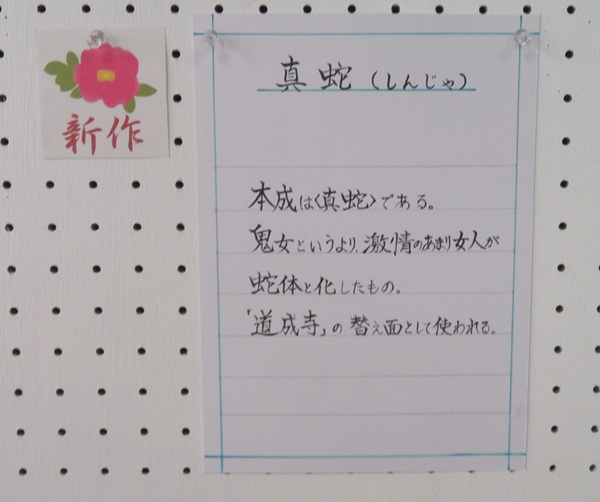 新作
真蛇（しんじゃ）
本成は〈真蛇〉である。
鬼女というより、激情のあまり女人が
蛇体と化したもの。
「道成寺」の替え面として使われる。